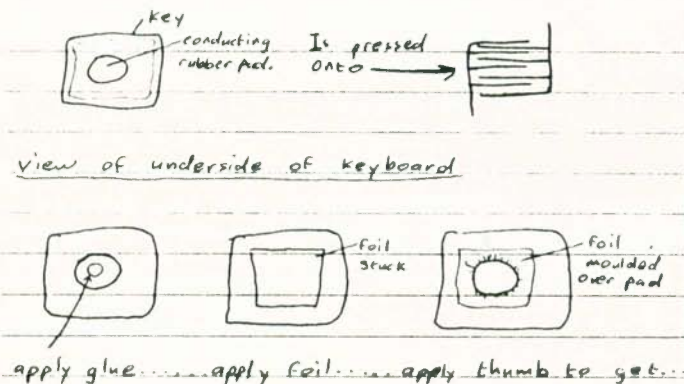 key
conducting
rubber pad.
Is pressed
onto
view of underside of keyboard
foil
stuck
foil
moulded
over pad
apply glue.....apply foil.....apply thumb to get...